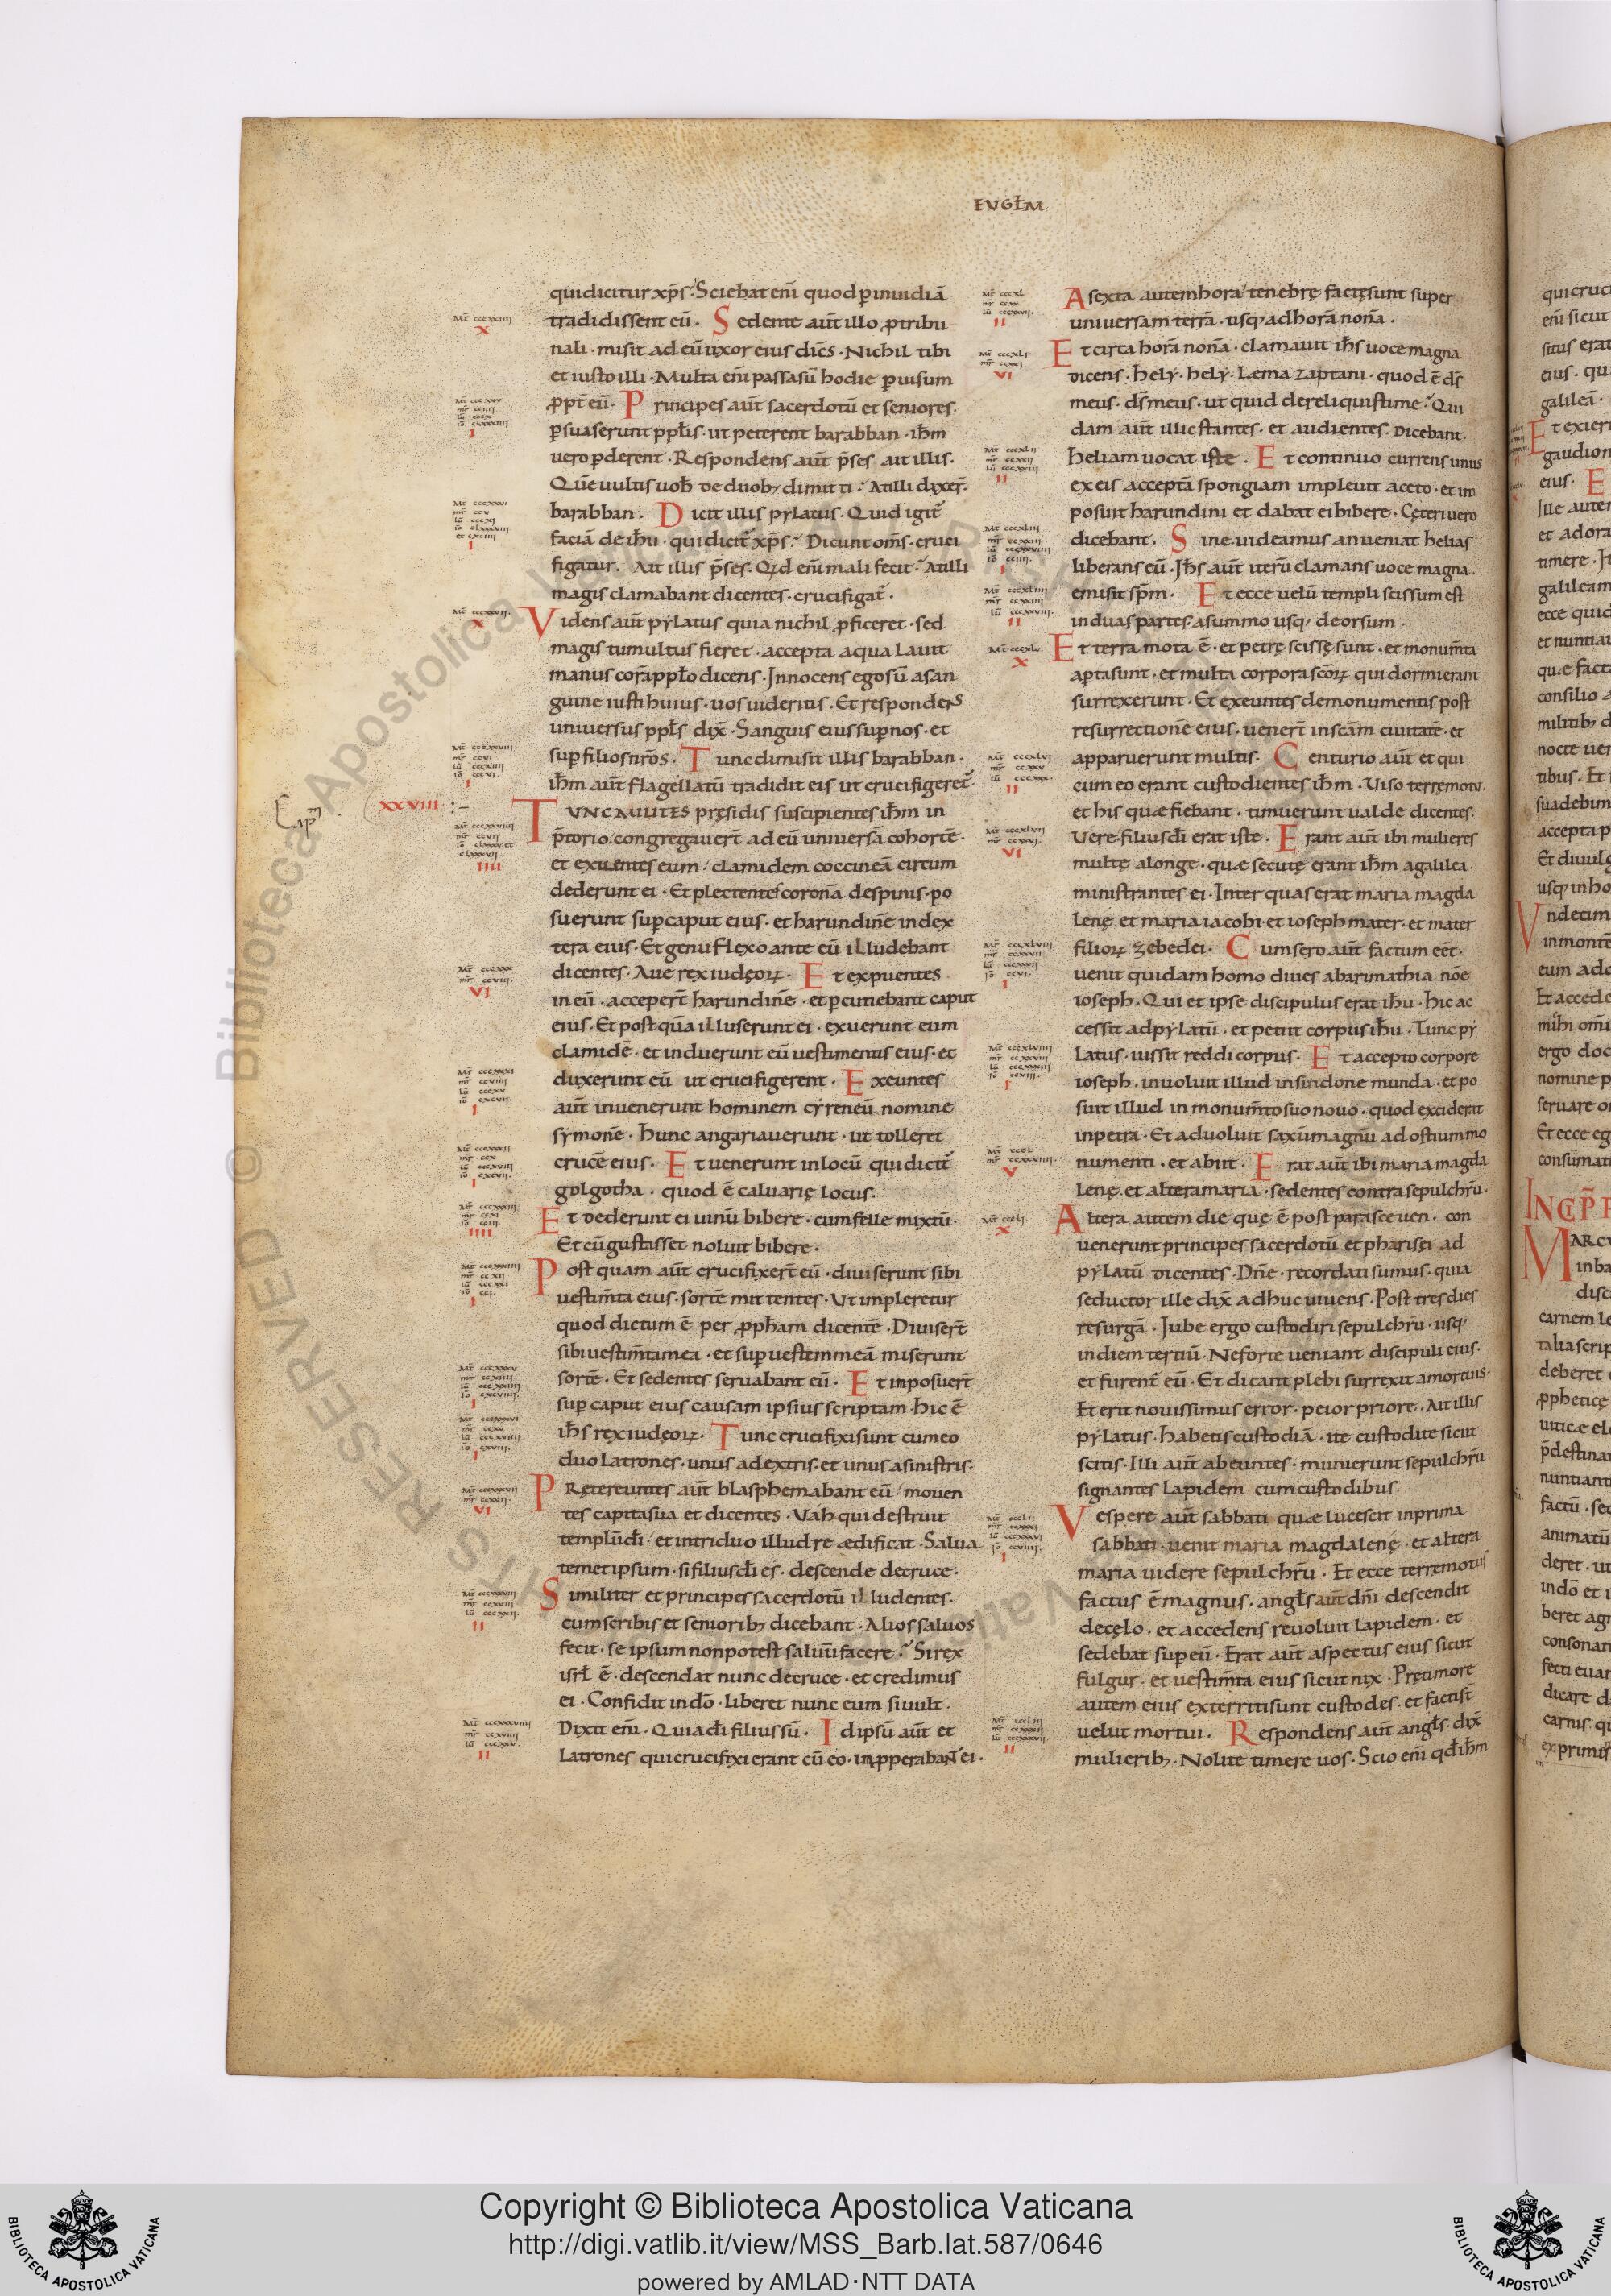 EVGĿM
qui dicitur xp̄s. Sciebat enī quod p inuidiā
tradidissent eū. Sedente aut̄ illo ꝓ tribu
nali. misit ad eū uxor eius dicēs. Nichil tibi
et iusto illi. Multa enī passa sū hodie p uisum
ꝓpt̄ eū. Principes aut̄ sacerdotū et seniores.
p̱suaserunt ppl̄is. ut peterent barabban. ih̄m
uero p̱derent. Respondens aut̄ p̄ses ait illis.
Quē uultis uob̄ de duob; dimitti? At illi dixer̄.
barabban. Dicit illis pylatus. Quid igit̄
faciā de ih̄u. qui dicit̄ xp̄s? Dicunt om̄s. cruci
figatur. Ait illis p̄ses. Qd enī mali fecit? At illi
magis clamabant dicentes. crucifigat̄.
Videns aut̄ pylatus quia nichil ꝓficeret. sed
magis tumultus fieret. accepta aqua lauit
manus corā ppl̄o dicens. Innocens ego sū a san
guine iusti huius. uos uideritis. Et respondens
uniuersus ppl̄s dix̄. Sanguis eius sup nos. et
sup filios nr̄os. Tunc dimisit illis barabban.
ih̄m aut̄ flagellatū tradidit eis ut crucifigeret̄.
XXVIII
TUNC MILITES pręsidis suscipientes ih̄m in
p̄torio. congregauer̄t ad eū uniuersā cohortē.
et exuentes eum. clamidem coccineā circum
dederunt ei. Et plectentes coronā de spinis. po
suerunt sup caput eius. et harundinē in dex
tera eius. Et genu flexo ante eū illudebant
dicentes. Aue rex iudęoꝝ. Et expuentes
in eū. acceper̄t harundinē. et p̱cutiebant caput
eius. Et post quā illuserunt ei. exuerunt eum
clamidē. et induerunt eū uestimentis eius. et
duxerunt eū ut crucifigerent. Exeuntes
aut̄ inuenerunt hominem cyreneū nomine
symonē. hunc angariauerunt. ut tolleret
crucē eius. Et uenerunt in locū qui dicit̄
golgotha. quod ē caluarię locus.
Et dederunt ei uinū bibere. cum felle mixtū.
Et cū gustasset noluit bibere.
Post quam aut̄ crucifixer̄t eū. diuiserunt sibi
uestim̄ta eius. sortē mittentes. Ut impleretur
quod dictum ē per ꝓpham dicentē. Diuiser̄t
sibi uestim̄ta mea. et sup uestem meā miserunt
sortē. Et sedentes seruabant eū. Et imposuer̄t
sup caput eius causam ipsius scriptam. hic ē
ih̄s rex iudęoꝝ. Tunc crucifixi sunt cum eo
duo latrones. unus a dextris. et unus a sinistris.
Prętereuntes aut̄ blasphemabant eū. mouen
tes capita sua et dicentes. Vah qui destruit
templū dī. et in triduo illud reædificat. Salua
temet ipsum. si filius dī es. descende de cruce.
Similiter et principes sacerdotū illudentes.
cum scribis et seniorib; dicebant. Alios saluos
fecit. se ipsum non potest saluū facere? Si rex
isrl̄ ē. descendat nunc de cruce. et credimus
ei. Confidit in dō. liberet nunc eum si uult.
Dixit enī. Quia dī filius sū. Id ipsū aut̄ et
latrones qui crucifixi erant cū eo. inꝓperabant ei.
A sexta autem hora tenebrę factę sunt super
uniuersam terrā. usq; ad horā nonā.
Et circa horā nonā. clamauit ih̄s uoce magna
dicens. hely. hely. Lema zaptani. quod ē ds̄
meus. ds̄ meus. ut quid dereliquisti me? Qui
dam aut̄ illic stantes. et audientes. Dicebant.
heliam uocat iste. Et continuo currens unus
ex eis acceptā spongiam impleuit aceto. et im
posuit harundini et dabat ei bibere. Cęteri uero
dicebant. Sine uideamus an ueniat helias
liberans eū. Ih̄s aut̄ iterū clamans uoce magna.
emisit sp̄m. Et ecce uelū templi scissum est
in duas partes. a summo usq; deorsum.
Et terra mota ē. et petrę scissę sunt. et monum̄ta
apta sunt. et multa corpora sc̄oꝝ qui dormierant
surrexerunt. Et exeuntes de monumentis post
resurrectionē eius. uener̄t in sc̄am ciuitatē. et
apparuerunt multis. Centurio aut̄ et qui
cum eo erant custodientes ih̄m. Uiso terręmotu
et his quæ fiebant. timuerunt ualde dicentes.
Vere filius dī erat iste. Erant aut̄ ibi mulieres
multę a longe. quæ secutę erant ih̄m a galilea.
ministrantes ei. Inter quas erat maria magda
lenę. et maria iacobi. et ioseph mater. et mater
filioꝝ zebedei. Cum sero aut̄ factum eēt.
uenit quidam homo diues ab arimathia nōe
ioseph. Qui et ipse discipulus erat ih̄u. hic ac
cessit ad pylatū. et petiit corpus ih̄u. Tunc py
latus. iussit reddi corpus. Et accepto corpore
ioseph. inuoluit illud in sindone munda. et po
suit illud in monum̄to suo nouo. quod exciderat
in petra. Et aduoluit saxū magnū ad ostium mo
numenti. et abiit. Erat aut̄ ibi maria magda
lenę. et altera maria. sedentes contra sepulchrū.
Altera autem die quę ē post parasceuen. con
uenerunt principes sacerdotū et pharisei ad
pylatū dicentes. Dn̄e. recordati sumus. quia
seductor ille dix̄ adhuc uiuens. Post tres dies
resurgā. Iube ergo custodiri sepulchrū. usq;
in diem tertiū. Ne forte ueniant discipuli eius.
et furent̄ eū. Et dicant plebi surrexit a mortuis.
Et erit nouissimus error. peior priore. Ait illis
pylatus. habetis custodiā. ite custodite sicut
scitis. Illi aut̄ abeuntes. munierunt sepulchrū
signantes lapidem cum custodibus.
Vespere aut̄ sabbati quæ lucescit in prima
sabbati. uenit maria magdalenę. et altera
maria uidere sepulchrū. Et ecce terremotus
factus ē magnus. angl̄s aut̄ dn̄i descendit
de cęlo. et accedens reuoluit lapidem. et
sedebat sup eū. Erat aut̄ aspectus eius sicut
fulgur. et uestim̄ta eius sicut nix. Prę timore
autem eius exterriti sunt custodes. et facti st̄
uelut mortui. Respondens aut̄ angl̄s. dix̄
mulierib;. Nolite timere uos. Scio enī qd ih̄m
Copyright © Biblioteca Apostolica Vaticana
http://digi.vatlib.it/view/MSS_Barb.lat.587/0646
powered by AMLAD·NTT DATA
BIBLIOTECA APOSTOLICA VATICANA
BIBLIOTECA APOSTOLICA VATICANA